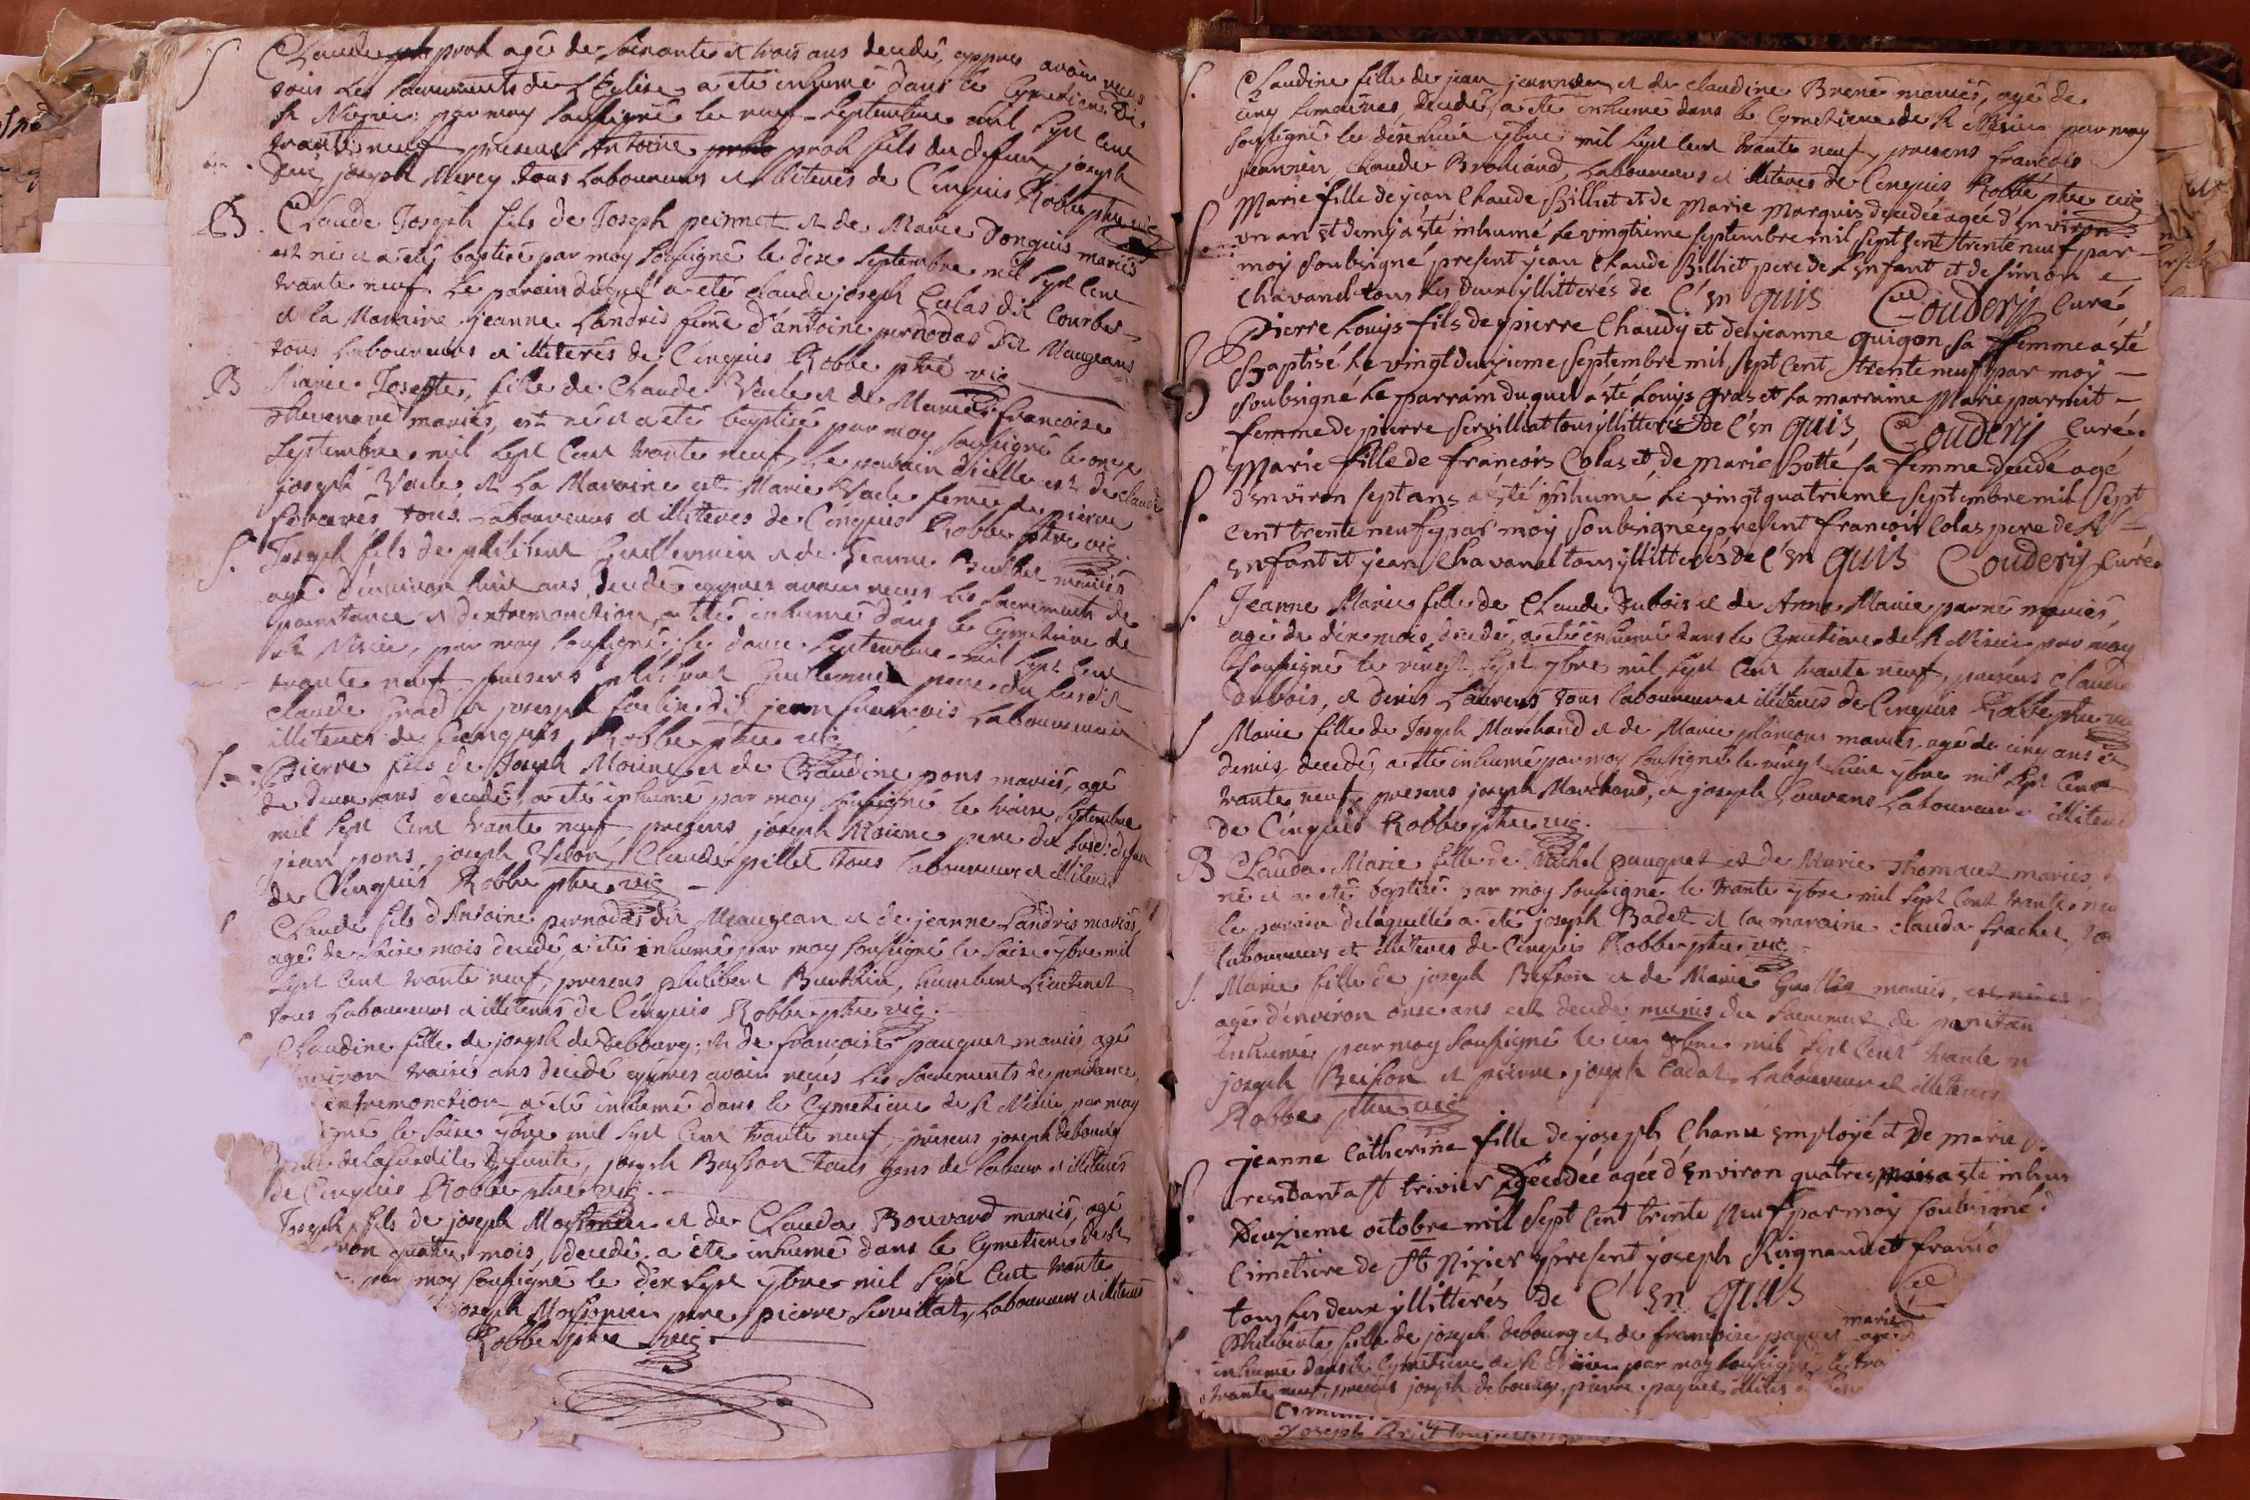 S Claude prob agé de soixante et trois ans decedé, appres avoir receus
tous les sacrements de l'Eglise a été inhumé dans le Cymetiere de
St Nizier par moy soussigné le neuf septembre mil sept cent
trante neuf presens Antoine prob fils du defunt joseph
joseph Mercy tous laboureurs et illiterés de Cinquis Robbe ptre vic
B. Claude Joseph fils de Joseph peinnet et de Marie Donguis mariés
est né et a été baptisé par moy soussigné le dixe septembre mil sept cent
trante neuf le parain duquel a été claude joseph Culas dit Courbes
et la Maraine jeanne Landris feme d'antoine pernodas dit Maugeans
tous laboureurs et illiterés de Cinquis Robbe ptre vic
B Marie Josepte, fille de Claude Vacle et de Marie francoise
thevenard mariés, est né et a été baptisé par moy soussigné le onze
septembre mil sept cent trante neuf, le parain d'icelle est de claude
joseph Vacle, et la Maraine est Marie Vacle feme de pierre
tous laboureurs et illiterés de Cinquis Robbe ptre vic
S. Joseph fils de philibert Guillermin et de Jeanne Berthet mariés
agé d'environ huit ans decedé appres avoir receus les sacrements de
penitance et d'extremonction a été inhumé dans le Cymetiere de
St Nizier, par moy soussigné le douze septembre mil sept cent
trante neuf presens philibert Guillermin pere du susdit
claude Grad et joseph dit jean francois laboureurs
illiterés de Cinquis Robbe ptre vic
S Pierre fils de Joseph Moine et de Claudine pons mariés, agé
de deux ans decedé, a été inhumé par moy soussigné le traise septembre
mil sept cent trante neuf presens joseph Moine pere du susd. defun
jean pons, joseph Velon, Claude pillet tous laboureurs et illiterés
de Cinquis Robbe ptre vic
Claude fils d'Antoine pernodas dit Meaugean et de jeanne Landris mariés
agé de saise mois decedé a été enhumé par moy soussigné le saise 7bre mil
sept cent trante neuf, presens philibert Berthier, humbert Lieutenet
tous laboureurs et illiterés de Cinquis Robbe ptre vic.
Claudine fille de joseph de Debourg, et de francoise pauquet mariés, agé
environ traise ans decedé appres avoir reçus les sacrements de penitance,
extremonction a été inhumé dans le Cymetiere de St Nizier par moy
igné le saise 7bre mil sept cent trante neuf, presens joseph debourg
de la susdite defunte, joseph Busson tous gens de labeur et illiterés
de Cinquis Robbe ptre vic.
Joseph fils de joseph Mossonier et de Clauda Bouvard mariés, agé
ron quatre mois, decedé a été inhumé dans le Cymetiere de St
par moy soussigné le dix sept 7bre mil sept cent trante
oseph Mossonier pere pierre Servillat, laboureurs et illiterés
Robbe ptre vic.
S. Claudine fille de jean jeannier et de claudine Brené mariés, agé de
cinq semaines decedé, a été inhumé dans le Cymetiere de St Nizier par moy
soussigné le dixneuf 7bre mil sept cent trante neuf, presens francois
jeannier, Claude Broliand, laboureurs et illiterés de Cinquis Robbe ptre vic
S Marie fille de jean Claude Billiet et de Marie Marquis decedée agée d'environ
un an et demy a esté inhumé le vingtieme septembre mil sept cent trente neuf par
moy soubsigné present jean Claude Billiet pere de l'enfant et de simon
Chavanel tous les deux yllitterés de C'en quis Coudery Curé
B Pierre Louys fils de pierre Chaudy et de jeanne guigon sa femme a esté
Baptisé le vingt duxieme septembre mil sept cent trente neuf par moy
soubsigné le parrain duquel a esté Louys gras et la marraine Marie parnit
femme de pierre servilliat tous yllitterés de C'en quis, Coudery Curé.
S. Marie fille de francois Colas et de marie hotte sa femme decedé agé
d'environ sept ans a esté inhumé le vingt quatrieme septembre mil sept
cent trente neuf par moy soubsigné present francois Colas pere de
enfant et jean Chavanel tous yllitterés de C'en quis Coudery Curé.
S. Jeanne Marie fille de Claude Dubois et de Anne Marie parné mariés,
agé de dix mois, decedé, a été inhumé dans le Cymetiere de St Nizier par moy
soussigné le vingt sept 7bre mil sept cent trante neuf, presens claude
Dubois, et denis Laurens tous laboureurs et illiterés de Cinquis Robbe ptre vic
S Marie fille de Joseph Marchand et de Marie plancons mariés agé de cinq ans et
demis decedé, a été inhumé par moy soussigné le vingt huit 7bre mil sept cent
trante neuf, presens joseph Marchand, et joseph Louvans laboureurs illiteré
de Cinquis Robbe ptre vic.
B Clauda Marie fille de Michel pauquet et de Marie Thomas mariés
né et a été baptisé par moy soussigné le trante 7bre mil sept cent trante neu
le parain delaquelle a été joseph Badet et la maraine clauda frachet, to
laboureurs et illiterés de Cinquis Robbe ptre vic
S. Marie fille de joseph Beisson et de Marie Guillin mariés,
agé d'environ onze ans est decedé munis du sacremens de penitan
Inhumé par moy soussigné le 7bre mil sept cent trante n
joseph Beisson et pierre joseph Cadat laboureurs et illiterés
Robbe ptre vic
Jeanne Catherine fille de joseph Chanu employé et de marie
S. residant a St trivier decedée agée d'environ quatres mois a esté inhum
deuzieme octobre mil sept cent trente neuf par moy soubsigné
Cimetiere de St Nizier present joseph Reignaud et franco
tous les deux yllitterés de C'en quis
Philiberte fille de joseph debourg et de francoise paquet mariés agé d
inhumé dans le Cymetiere de St Nizier par moy soussigné le troi
trante neuf, presens joseph debourg, pierre paquet illités
Joseph